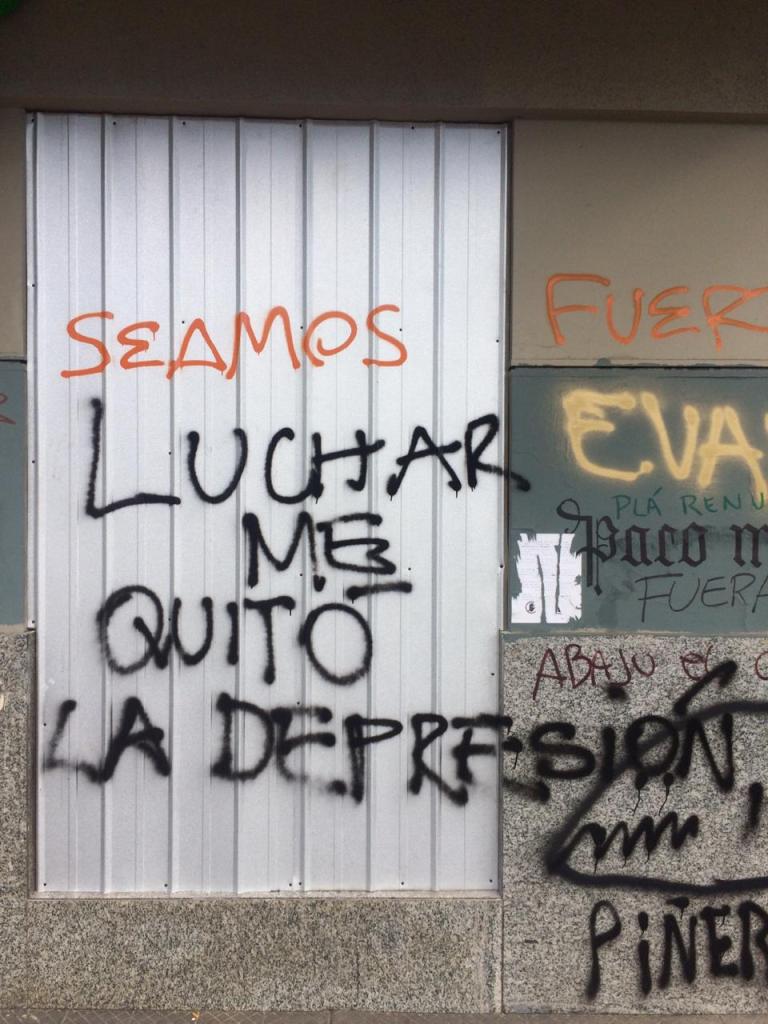 SEAMOS
LUCHAR
ME
QUITÓ
LA DEPRESIÓN
FUER
EVA
PLÁ RENU
Paco m
FUERA
ABAJO el
PIÑER